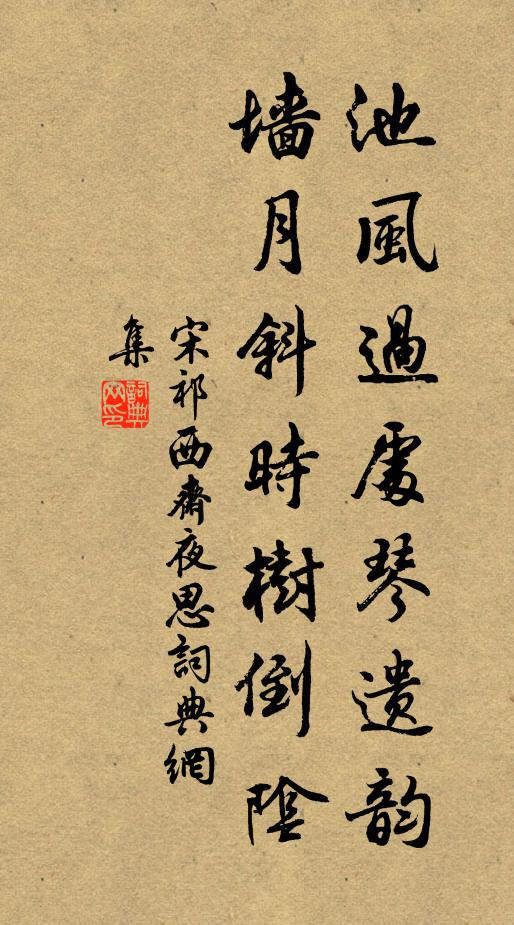 池風過處琴遺韵
墻月斜時樹倒陰
宋祁西齋夜思詞典網
集
詞典網印